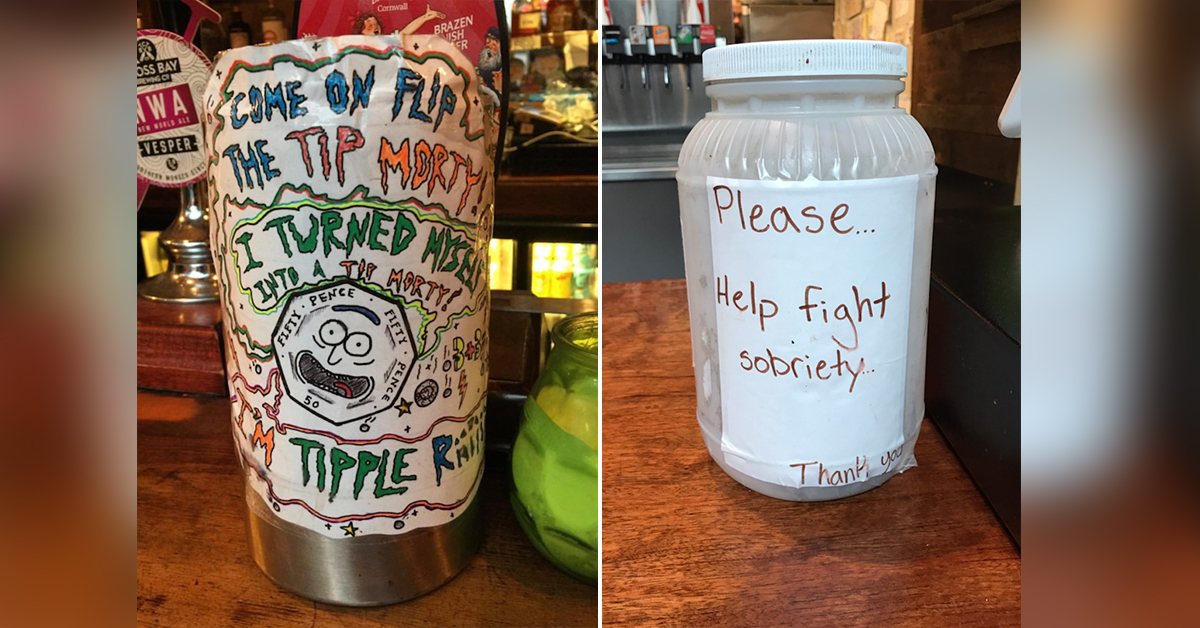 Cornwall
BRAZEN
OSS BAY
BREWING CO
NWA
NEW WORLD ALE
VESPER
COME ON FLIP
THE TIP MORTY!
I TURNED MYSELF
INTO A TIP MORTY!
FIFTY · PENCE FIFTY · PENCE
50
I'M TIPPLE R
Please...
Help fight
sobriety...
Thank you